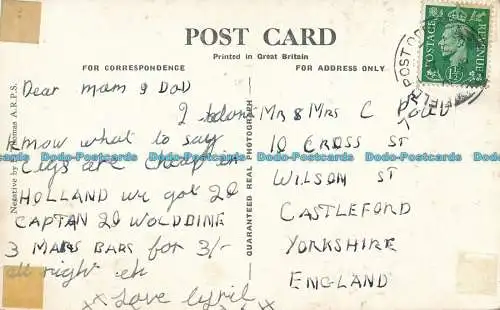 POST CARD
Printed in Great Britain
FOR CORRESPONDENCE
FOR ADDRESS ONLY
POSTAGE
REVENUE
POST
Negative by
A.R.P.S.
GUARANTEED REAL PHOTOGRAPH
Dear mam & Dad
I dont
know what to say
Cigs are cheap in
HOLLAND we got 20
CAPTAN 20 WOLDBINE
3 MARS BARS for 3/-
all right eh
xx Love Cyril
MR & MRS C
10 CROSS ST
WILSON ST
CASTLEFORD
YORKSHIRE
ENGLAND
Dodo-Postcards Dodo-Postcards Dodo-Postcards Dodo-Postcards Dodo-Postcards